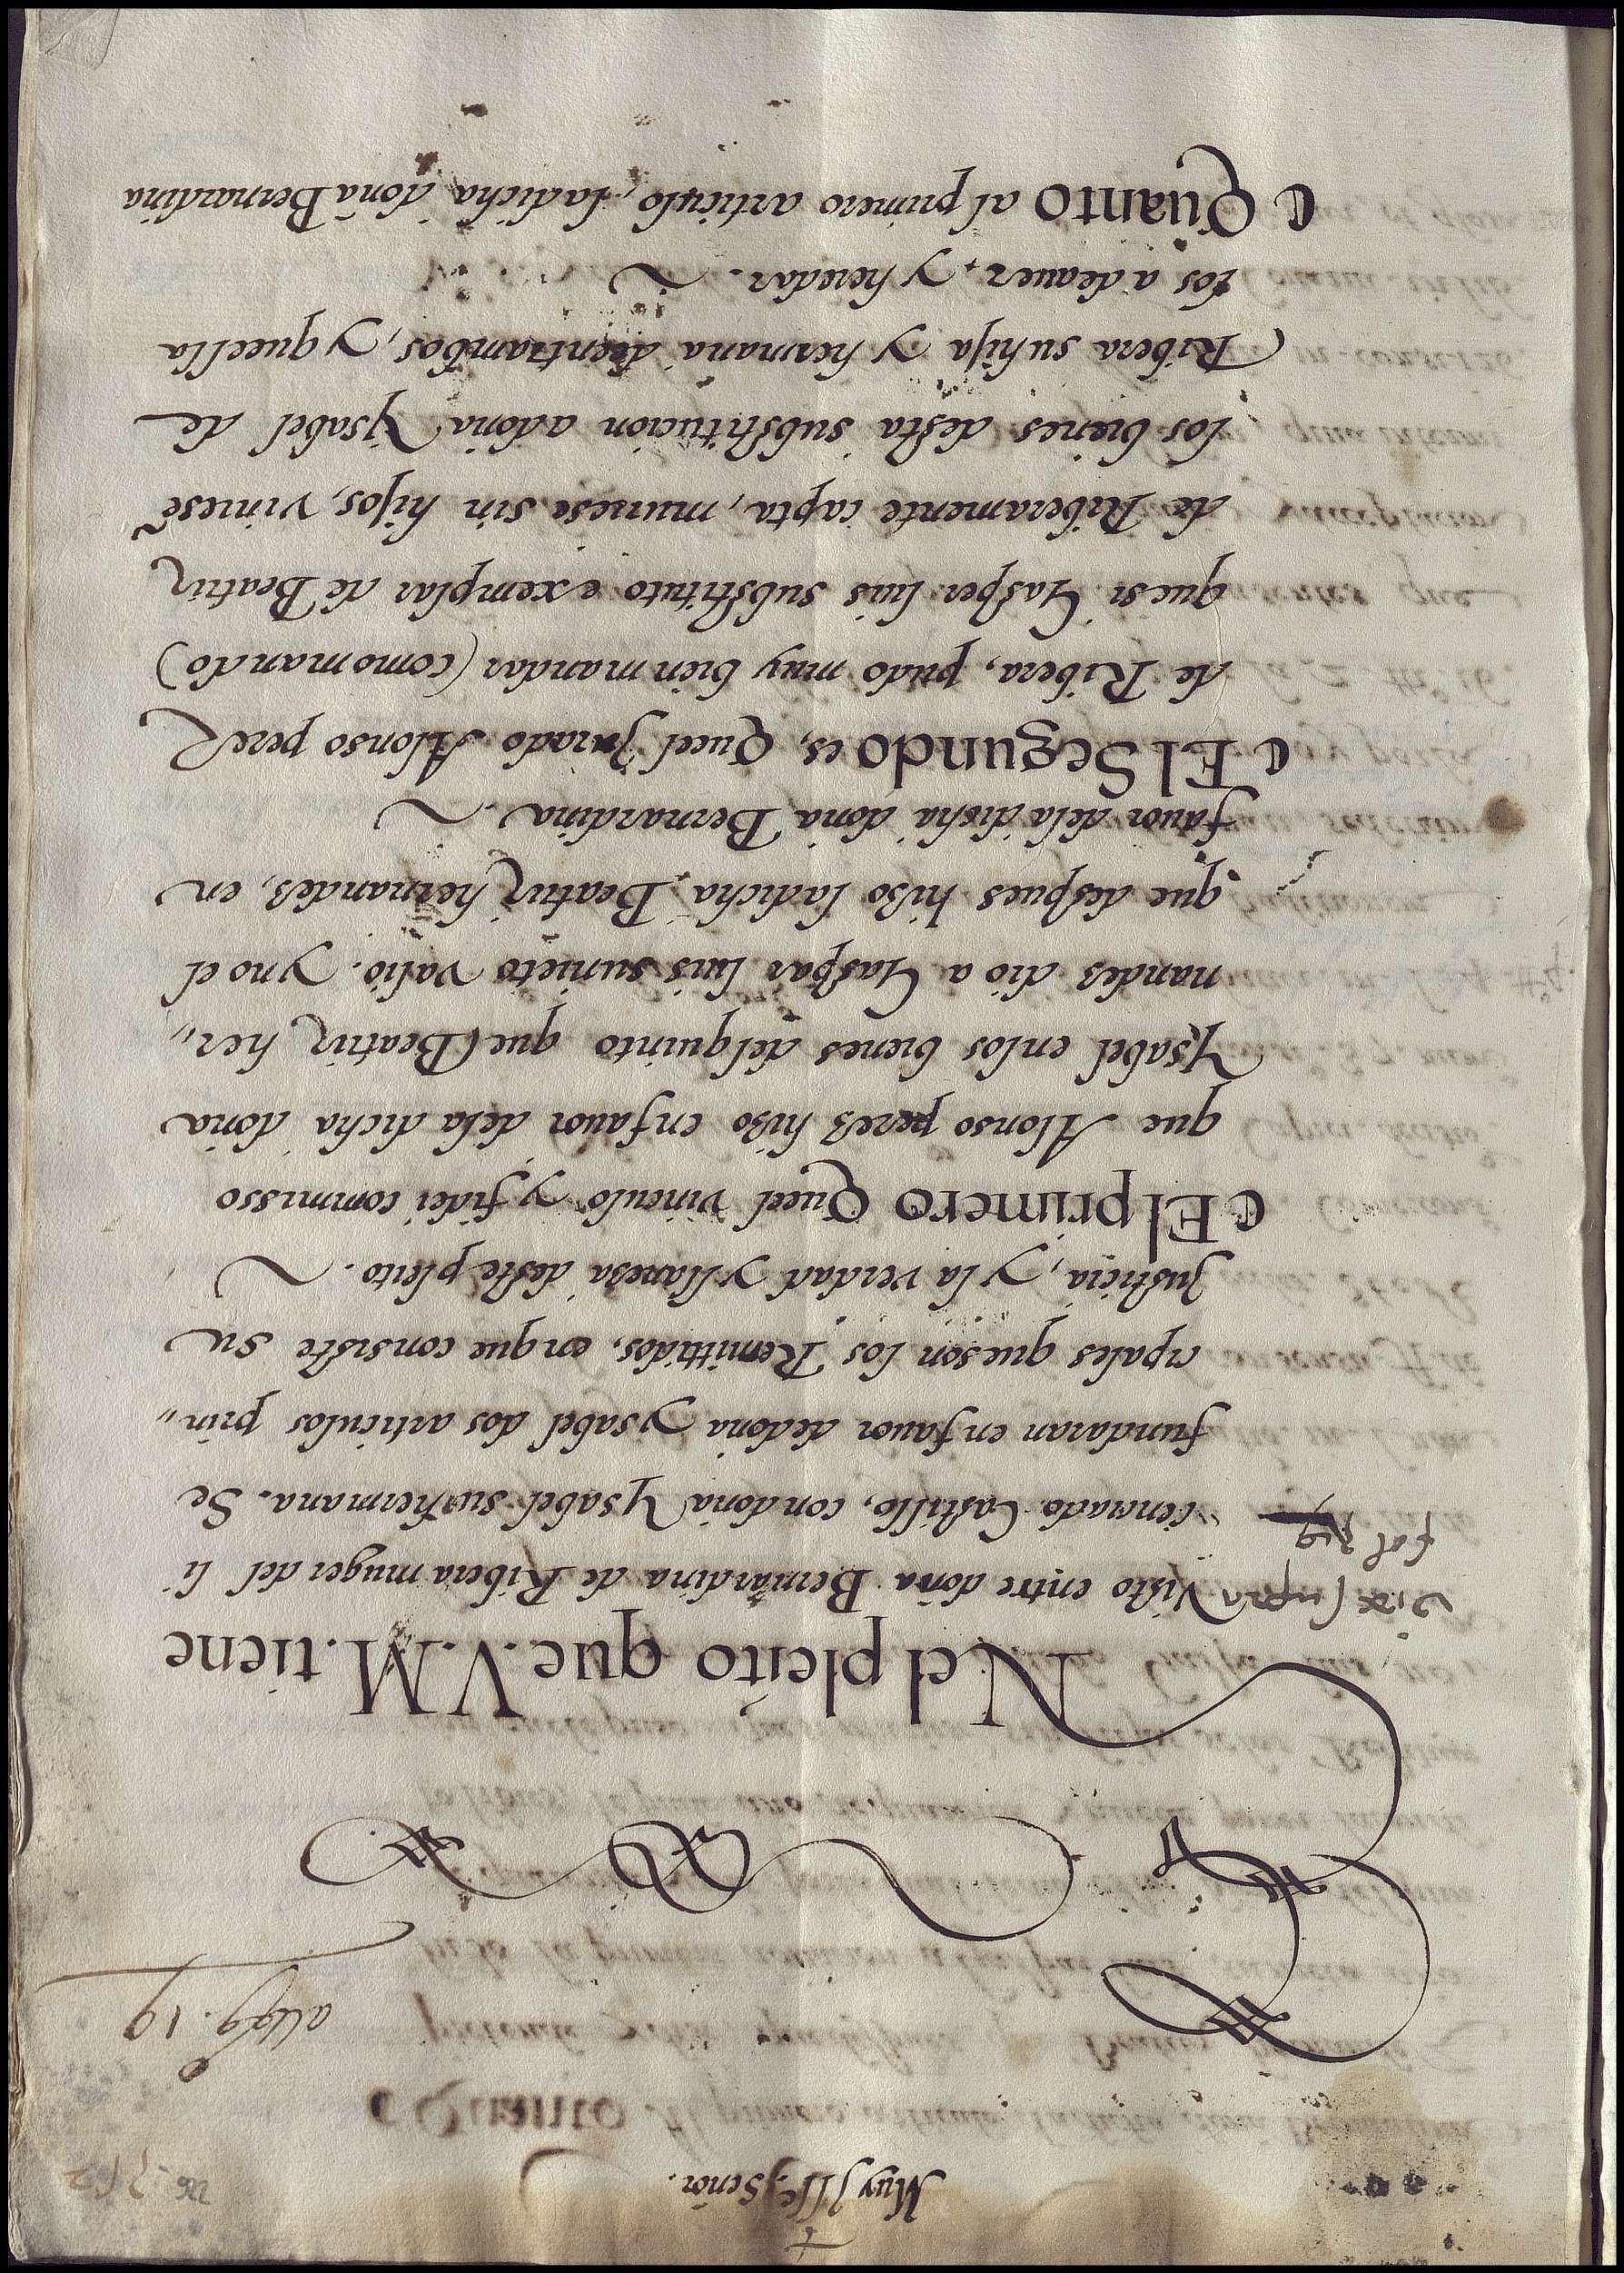 †
Muy Ill.e Señor.
alleg. 19
EN el pleito que. V. M. tiene
Visto entre doña Bernardina de Ribera muger del li
cenciado Castillo, con doña Ysabel su hermana. Se
fundaran en favor de doña ysabel dos articulos prin„
cipales que son los Remittidos, en que consiste su
Justicia, y la verdad y llaneza deste pleito.
vide supra
fol
C El primero Quel vinculo y fidei commisso
que Alonso perez hizo en favor dela dicha doña
Ysabel enlos bienes del quinto que Beatriz her„
nandes dio a Gaspar luis su nieto valio. y no el
que despues hizo ladicha Beatriz hernandes, en
favor dela dicha doña Bernardina.
C El Segundo es, Quel Jurado Alonso pereR
de Ribera, pudo muy bien mandar (como mando)
que si Gasper luis substituto exemplar de Beatriz
de Ribera mente capta, muriese sin hijos, viniesẽ
los bienes desta substitucion a doña Ysabel de
Ribera su hija y hermana de entrambos, y que ella
los a de aver, y heredar.
C Quanto al primero articulo, ladicha doña Bernardina